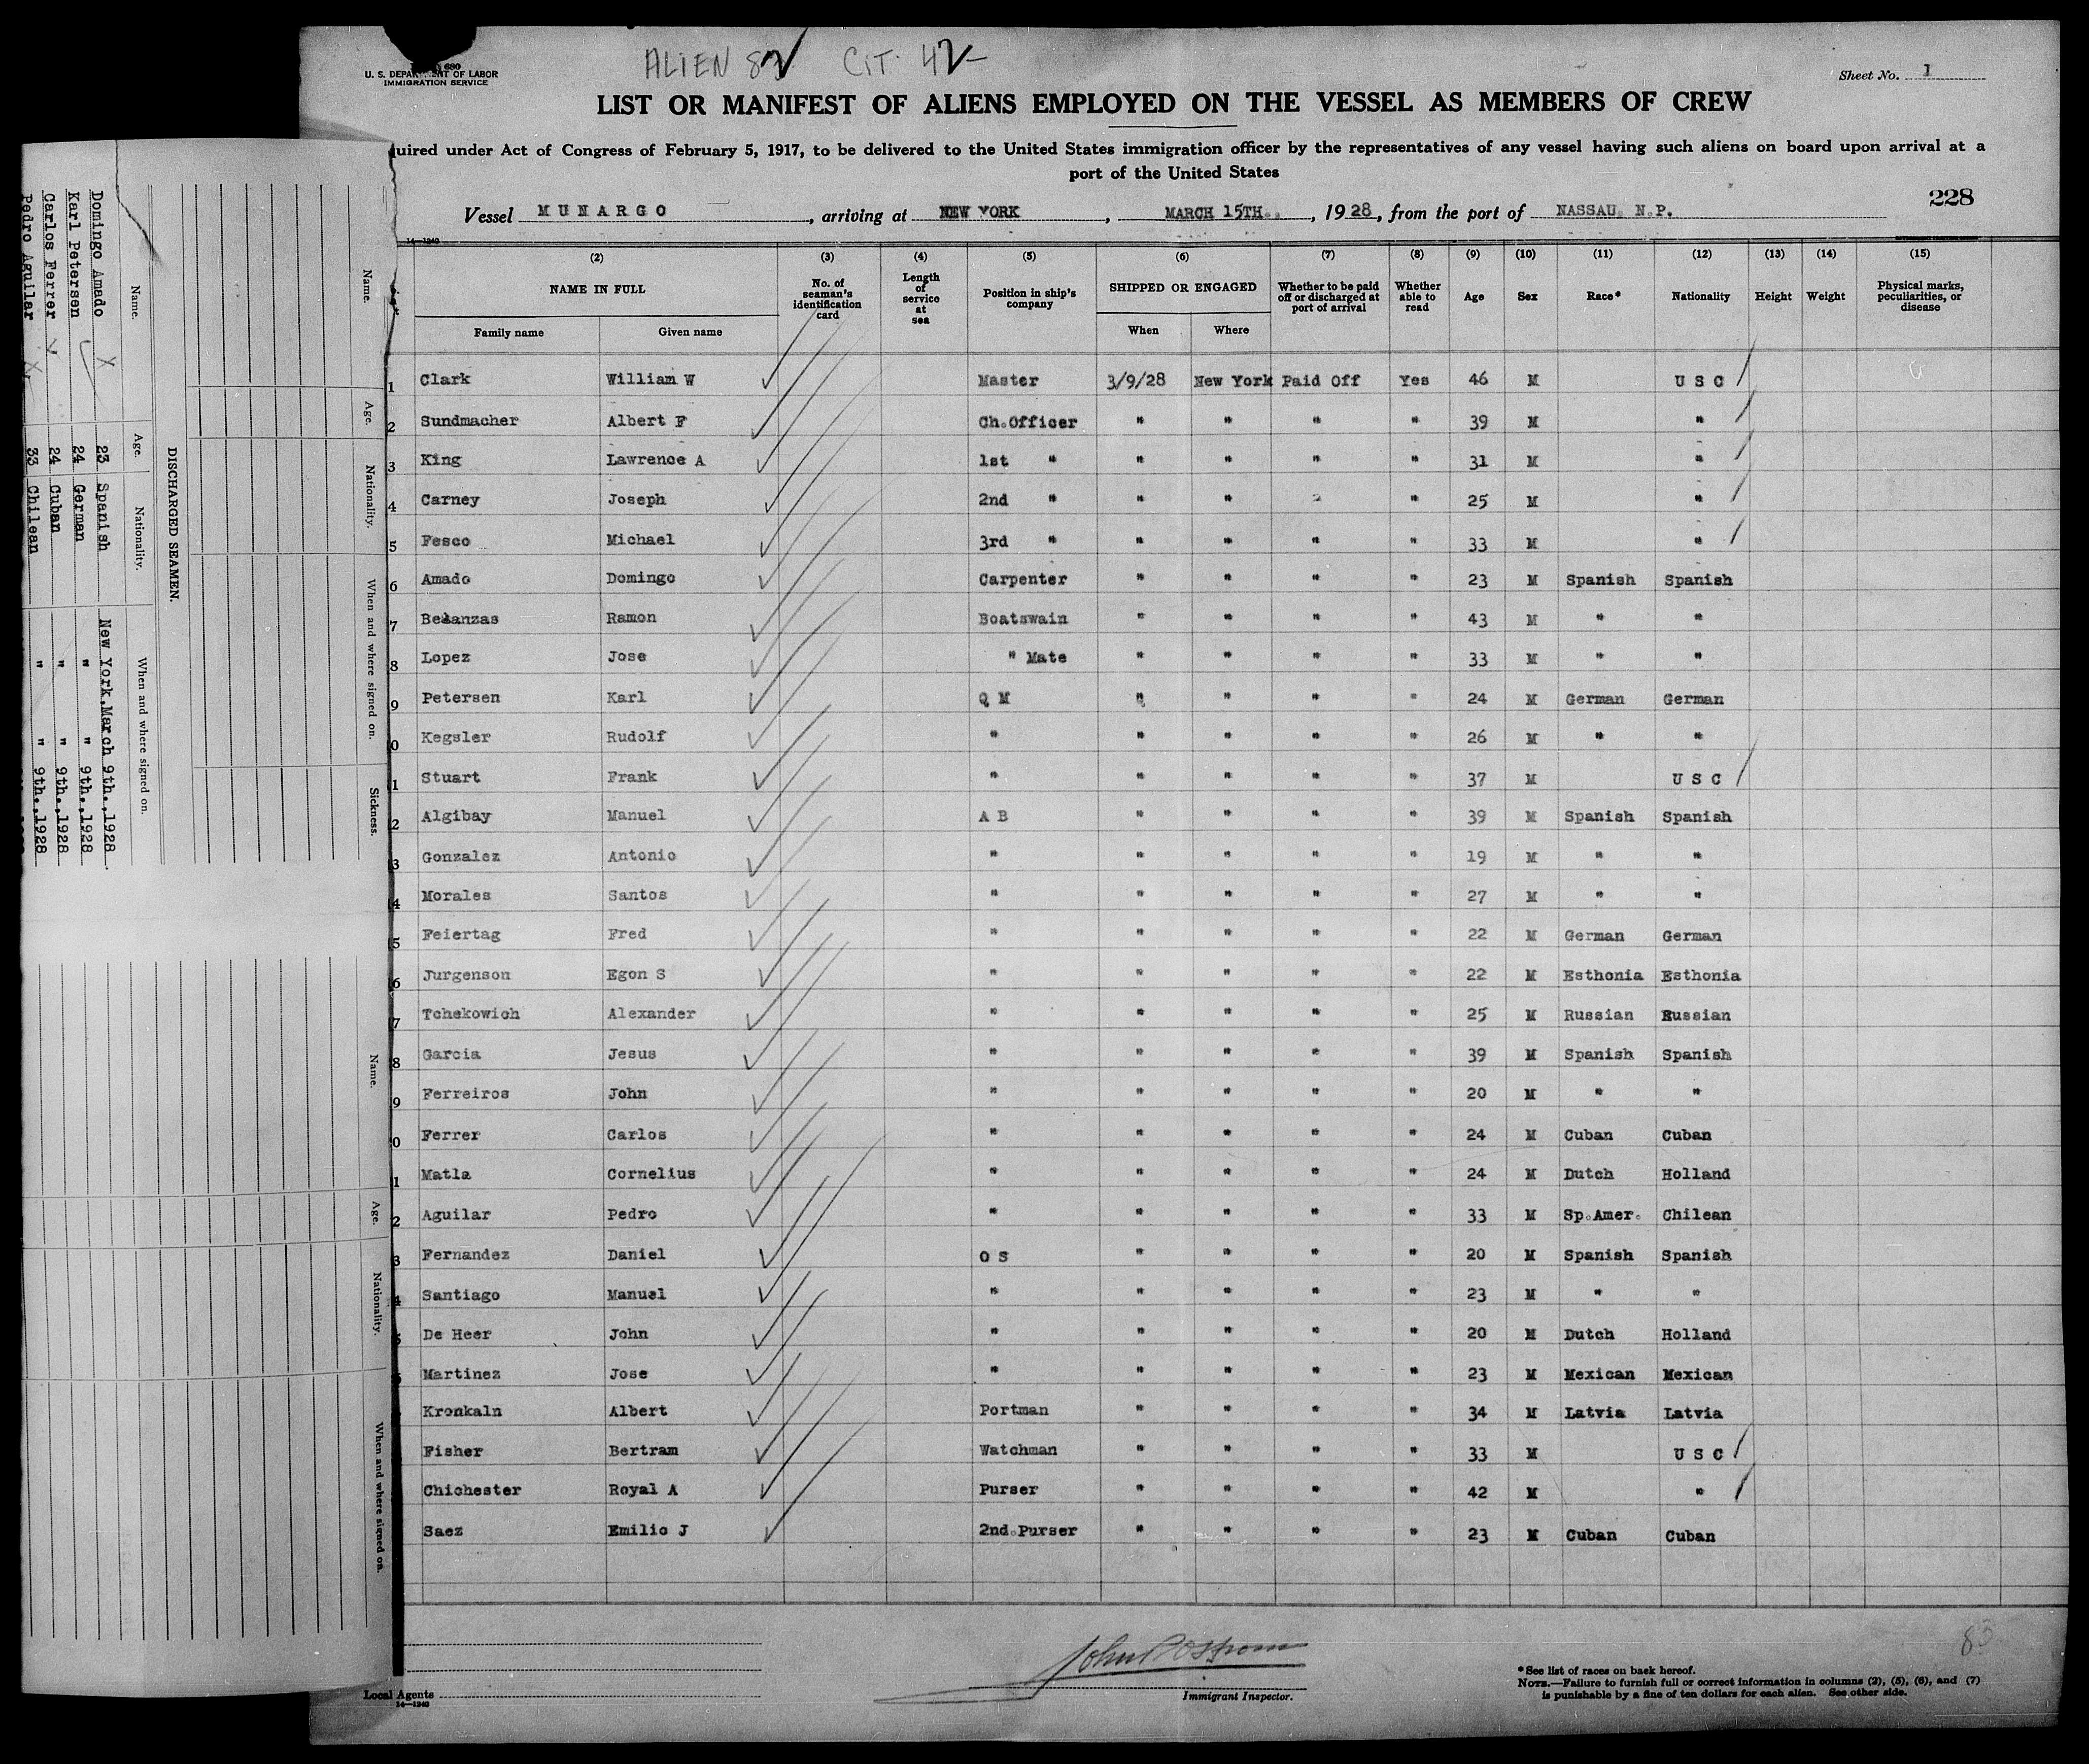 ALIEN 82 CIT. 42
680
U. S. DEPARTMENT OF LABOR
IMMIGRATION SERVICE
Sheet No. 1
LIST OR MANIFEST OF ALIENS EMPLOYED ON THE VESSEL AS MEMBERS OF CREW
uired under Act of Congress of February 5, 1917, to be delivered to the United States immigration officer by the representatives of any vessel having such aliens on board upon arrival at a
port of the United States
228
Vessel MUNARGO, arriving at NEW YORK, MARCH 15TH., 1928, from the port of NASSAU N.P.
14—1240
(2) (3) (4) (5) (6) (7) (8) (9) (10) (11) (12) (13) (14) (15)
NAME IN FULL No. of seaman's identification card Length of service at sea Position in ship's company SHIPPED OR ENGAGED Whether to be paid off or discharged at port of arrival Whether able to read Age Sex Race* Nationality Height Weight Physical marks, peculiarities, or disease
Family name Given name When Where
1 Clark William W Master 3/9/28 New York Paid Off Yes 46 M U S C
2 Sundmacher Albert F Ch.Officer " " " " 39 M "
3 King Lawrence A 1st " " " " " 31 M "
4 Carney Joseph 2nd " " " " " 25 M "
5 Fesco Michael 3rd " " " " " 33 M "
6 Amado Domingo Carpenter " " " " 23 M Spanish Spanish
7 Betanzas Ramon Boatswain " " " " 43 M " "
8 Lopez Jose " Mate " " " " 33 M " "
9 Petersen Karl Q M " " " " 24 M German German
0 Kegsler Rudolf " " " " " 26 M " "
1 Stuart Frank " " " " " 37 M U S C
2 Algibay Manuel A B " " " " 39 M Spanish Spanish
3 Gonzalez Antonio " " " " " 19 M " "
4 Morales Santos " " " " " 27 M " "
5 Feiertag Fred " " " " " 22 M German German
6 Jurgenson Egon S " " " " " 22 M Esthonia Esthonia
7 Tchekowich Alexander " " " " " 25 M Russian Russian
8 Garcia Jesus " " " " " 39 M Spanish Spanish
9 Ferreiros John " " " " " 20 M " "
0 Ferrer Carlos " " " " " 24 M Cuban Cuban
1 Matla Cornelius " " " " " 24 M Dutch Holland
2 Aguilar Pedro " " " " " 33 M Sp.Amer. Chilean
3 Fernandez Daniel O S " " " " 20 M Spanish Spanish
4 Santiago Manuel " " " " " 23 M " "
5 De Heer John " " " " " 20 M Dutch Holland
Martinez Jose " " " " " 23 M Mexican Mexican
Kronkaln Albert Portman " " " " 34 M Latvia Latvia
Fisher Bertram Watchman " " " " 33 M U S C
Chichester Royal A Purser " " " " 42 M "
Saez Emilio J 2nd.Purser " " " " 23 M Cuban Cuban
Local Agents
14—1240
Immigrant Inspector.
*See list of races on back hereof.
NOTE.—Failure to furnish full or correct information in columns (2), (5), (6), and (7)
is punishable by a fine of ten dollars for each alien. See other side.
Name. Age. Nationality. When and where signed on. Sickness.
Name. Age. Nationality. When and where signed on.
DISCHARGED SEAMEN.
Name. Age. Nationality. When and where signed on.
Domingo Amado 23 Spanish New York, March 9th.,1928.
Karl Petersen 24 German " " 9th.,1928
Carlos Ferrer 24 Cuban " " 9th.,1928
Pedro Aguilar 33 Chilean " " 9th.,1928